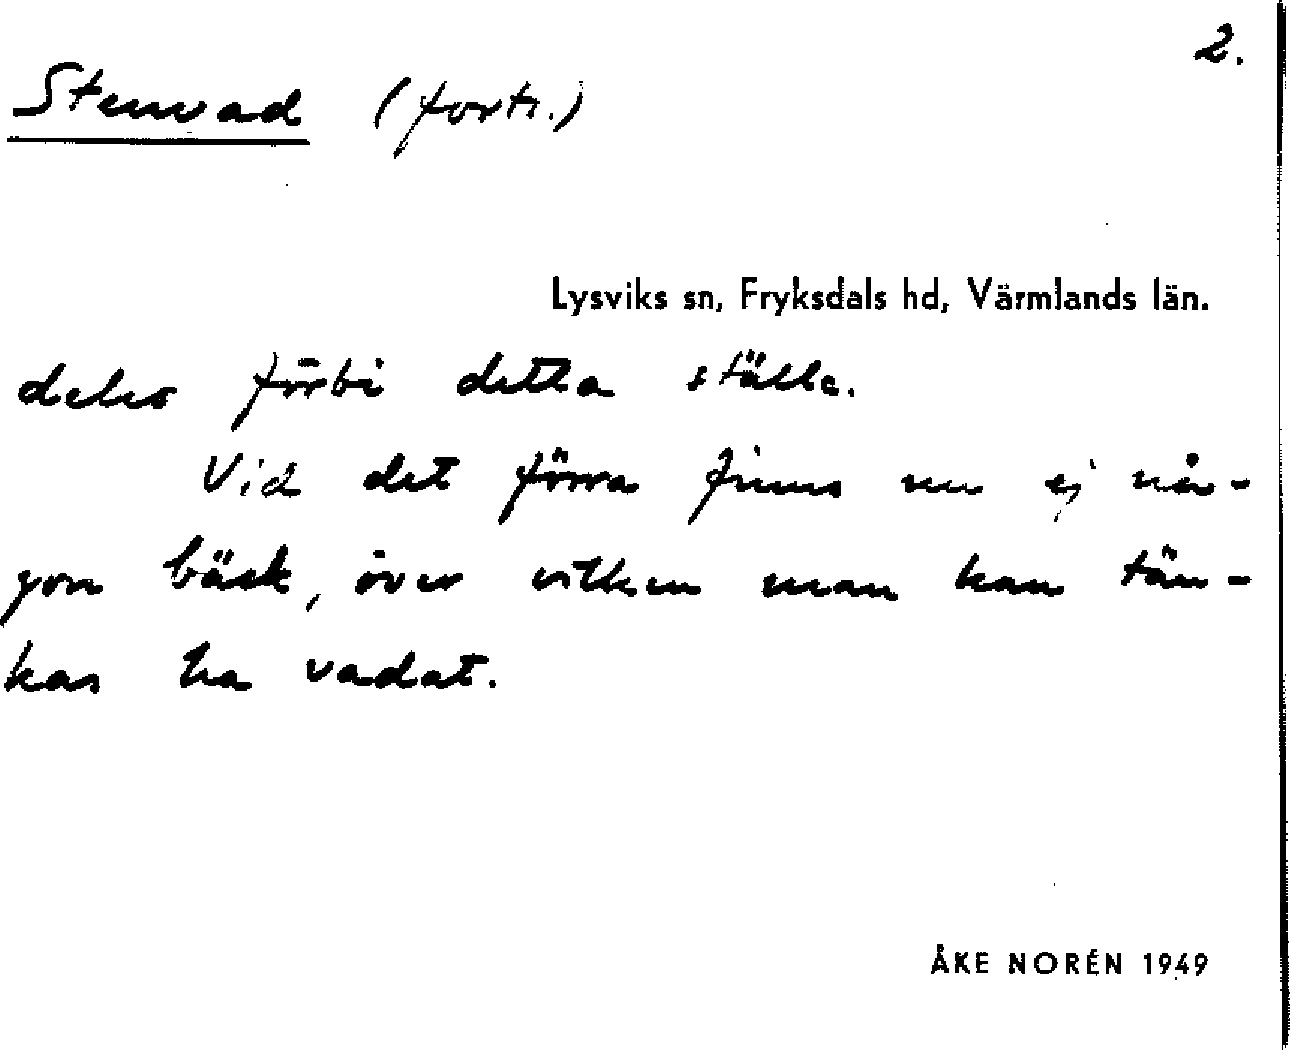 2.
Stenvad (forts.)
Lysviks sn, Fryksdals hd, Värmlands län.
deles förbi detta ställe.
Vid det förra finns nu ej nå-
gon bäck, över vilken man kan tän-
kas ha vadat.
ÅKE NORÉN 1949